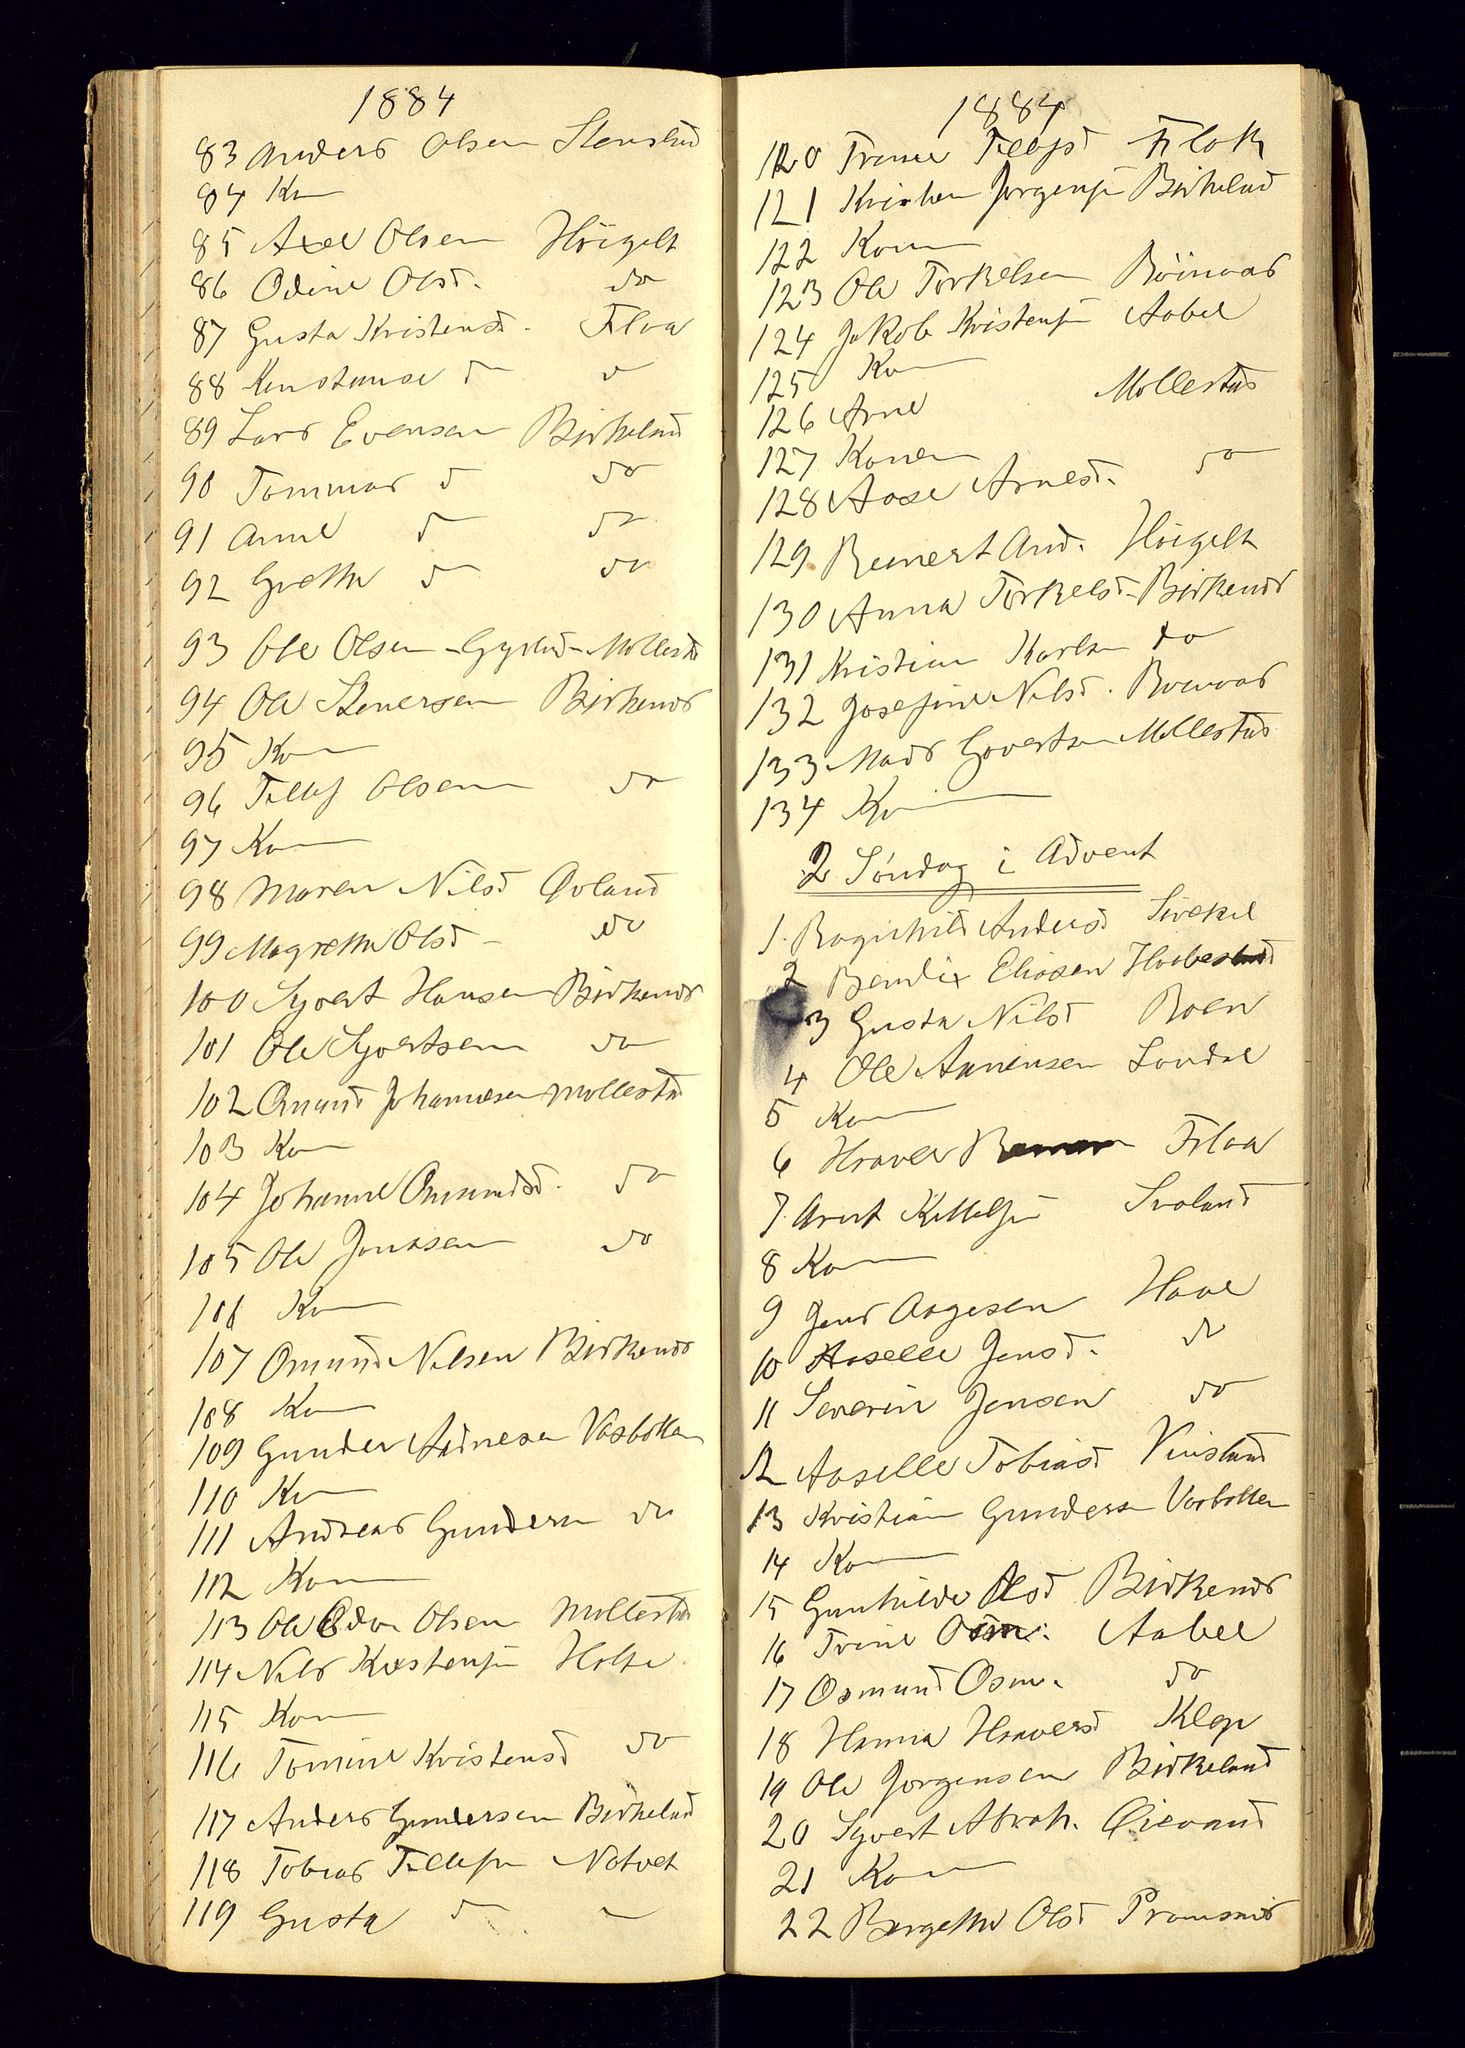 1884
83 Anders Olsen Stenslid
84 Kon
85 Axel Olsen Höigilt
86 Odine Olsd. do
87 Gusta Kristensd. Floa
88 Konstanse d do
89 Lars Evensen Birkeland
90 Tommas d do
91 Anne d do
92 Grethe d do
93 Ole Olsen - - Mollestd
94 Ole Stenersen Birkenes
95 Kon
96 Tellef Olsen do
97 Kon
98 Maren Nilsd Qvland
99 Magrethe Olsd - do
100 Syvert Hansen Birkenes
101 Ole Syvertsen do
102 Omund Johannesen Mollestd
103 Kon
104 Johanne Omundsd. do
105 Ole Jonasen do
106 Kon
107 Omund Nilsen Birkenes
108 Kon
109 Gunder Adnesen Vasbotten
110 Kon
111 Andreas Gundersn do
112 Kon
113 Ole Edv. Olsen Mollestd
114 Nils Kristensen Holte
115 Kon
116 Tomine Kristensd do
117 Anders Gundersen Birkeland
118 Tobias Tellefsn Natvet
119 Gusta d -
1884
120 Trine Tellefsd Flok
121 Kristen Jorgensn Birkeland
122 Kon
123 Ole Torkelsen Röinaas
124 Jakob Kristensn Aabel
125 Kon
126 Arne Mollestad
127 Konen
128 Aase Arnesd. do
129 Reinert And. Höigilt
130 Anna Torkelsd - Birkenes
131 Kristian Karlsn do
132 Josefine Nilsd. Roinaas
133 Mads Govertsn Mollestad
134 Kon
2 Søndag i Advent
1. Ragnhild Andersd Sirekil
2 Bendix Eliasen
3 Gusta Nilsd Roen
4 Ole Aanensen Londal
5 Kon
6 Haaver Floa
7. Arnt Kittelsn Svaland
8 Kon
9 Jens Aagesen Haae
10 Aaselle Jensd. do
11 Severin Jensen do
12 Aaselle Tobiasd
13 Kristian Gundersn Vasbotten
14 Kon
15 Gunhilde Olsd Birkenes
16 Trine Osm. Aabel
17 Osmund Osm. do
18 Hanna Haaversd Klep
19 Ole Jorgensen Birkeland
20 Syvert Abrah. Oievand
21 Kon
22 Bergethe Olsd